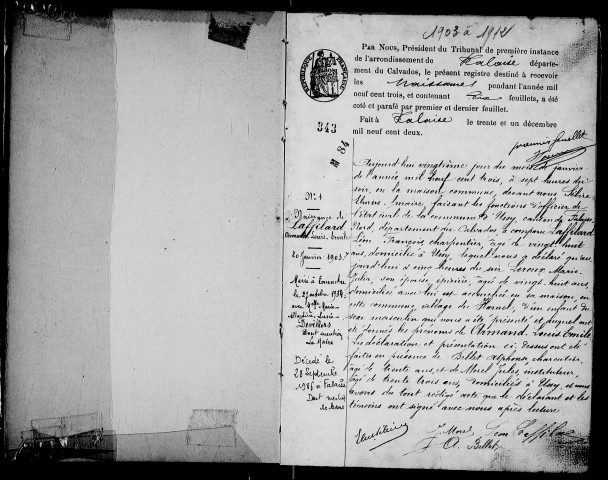 1903 à 1912
PAR NOUS, Président du Tribunal de première instance
de l'arrondissement de Falaise départe-
ment du Calvados, le présent registre destiné à recevoir
les Naissances pendant l'année mil
neuf cent trois, et contenant feuillets, a été
coté et parafé par premier et dernier feuillet.
Fait à Falaise le trente et un décembre
mil neuf cent deux.
RÉPUBLIQUE FRANÇAISE
premier feuillet
343
M 84
N° 1
Naissance de
Laffilard
Armand Louis Emile
20 janvier 1903
Marié à
le 27 octobre 1934
avec Marie
Lucie
Devillers
Dont mention
Le Maire
Décédé le
28 Septembre
1986 à Falaise
Dont mention
Aujourd'hui vingtième jour du mois de janvier
de l'année mil neuf cent trois, à sept heures du
soir, en la maison commune, devant nous
maire, faisant les fonctions d'officier de
l'état civil de la commune d'Ussy, canton de Falaise
Nord, département du Calvados a comparu Laffilard
Léon François charpentier, âgé de vingt huit
ans, domicilié à Ussy, lequel nous a déclaré qu'au-
jourd'hui à cinq heures du soir Leroux Marie
Julia, son épouse, âgée de vingt huit ans
domiciliée avec lui est accouchée en sa maison, en
cette commune, village du Hamel, d'un enfant du
sexe masculin qui nous a été présenté et auquel ont
été donnés les prénoms de Armand Louis Emile
Les déclaration et présentation ci-dessus ont été
faites en présence de Billet Alphonse, charcutier,
âgé de trente ans, et de Morel Jules, instituteur
âgé de trente trois ans, domiciliés à Ussy, et nous
avons du tout rédigé acte que le déclarant et les
témoins ont signé avec nous après lecture
J. Morel Léon Laffilard
A. Billet